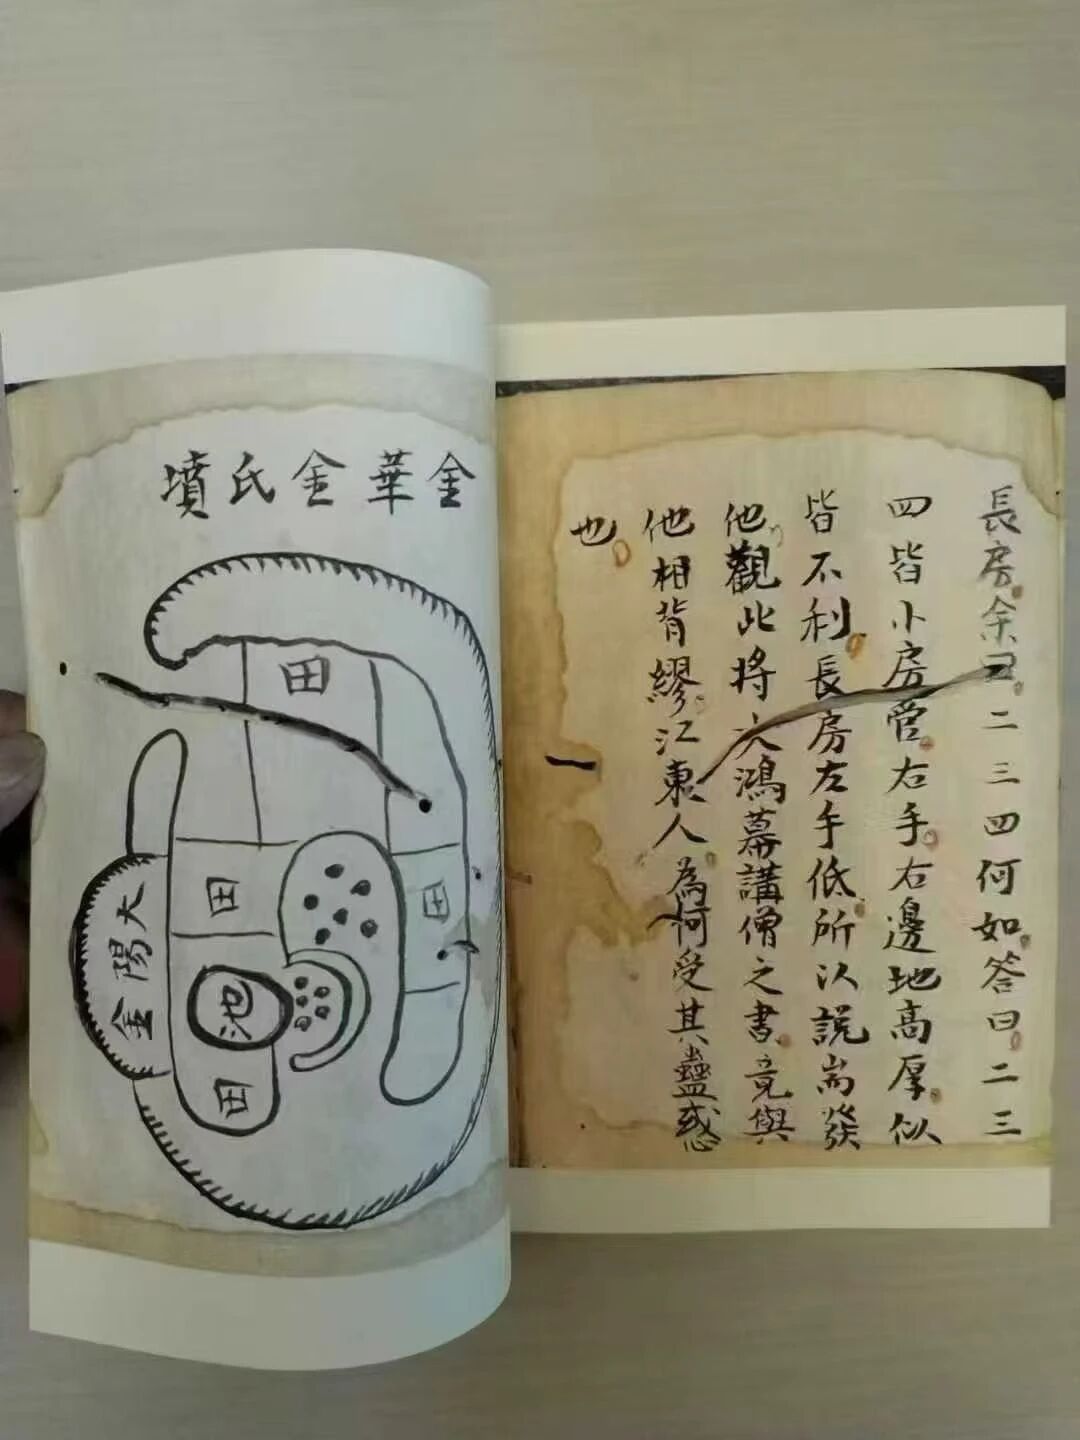 長房余曰二三四何如答曰二三
四皆小房管右手右邊地高厚似
皆不利長房左手低所以說耑發
他觀此將大鴻幕講僧之書竟與
他相背繆江東人為何受其蠱惑
也
金華金氏墳
田
田
田
大陽金
池
田